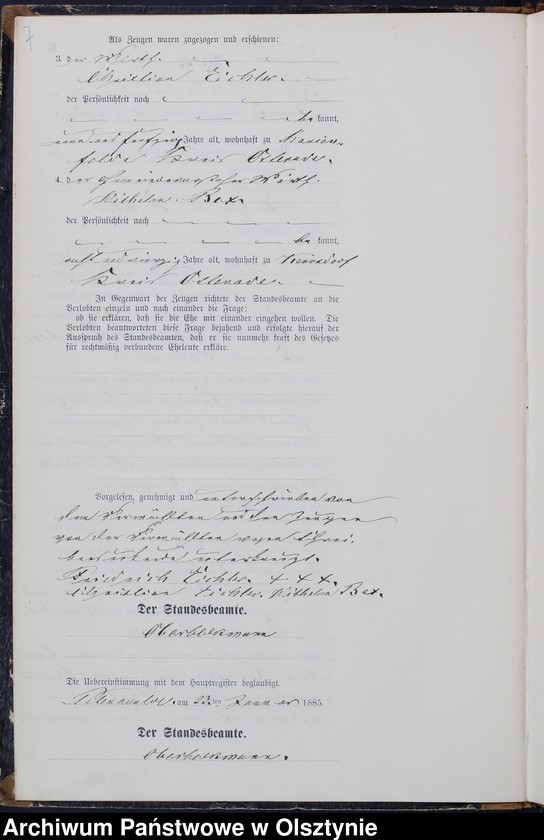 7
Als Zeugen waren zugezogen und erschienen:
3. der Wirth
Christian Eichler.
der Persönlichkeit nach
be kannt,
neun und fünfzig Jahre alt, wohnhaft zu Marien-
felde Kreis Osterode.
4. der Wirth
Wilhelm Bex.
der Persönlichkeit nach
be kannt,
acht und vierzig Jahre alt, wohnhaft zu
Kreis Osterode.
In Gegenwart der Zeugen richtete der Standesbeamte an die
Verlobten einzeln und nach einander die Frage:
ob sie erklären, daß sie die Ehe mit einander eingehen wollen. Die
Verlobten beantworteten diese Frage bejahend und erfolgte hierauf der
Ausspruch des Standesbeamten, daß er sie nunmehr kraft des Gesetzes
für rechtmäßig verbundene Eheleute erkläre.
Vorgelesen, genehmigt und unterschrieben von
dem Vermählten und den Zeugen
von der Vermählten wegen Schrei-
bensunkunde unterkreuzt.
Friedrich Eichler. + + +.
Christian Eichler. Wilhelm Bex.
Der Standesbeamte.
Die Uebereinstimmung mit dem Hauptregister beglaubigt.
am 23 ten Januar 1885.
Der Standesbeamte.
Archiwum Państwowe w Olsztynie